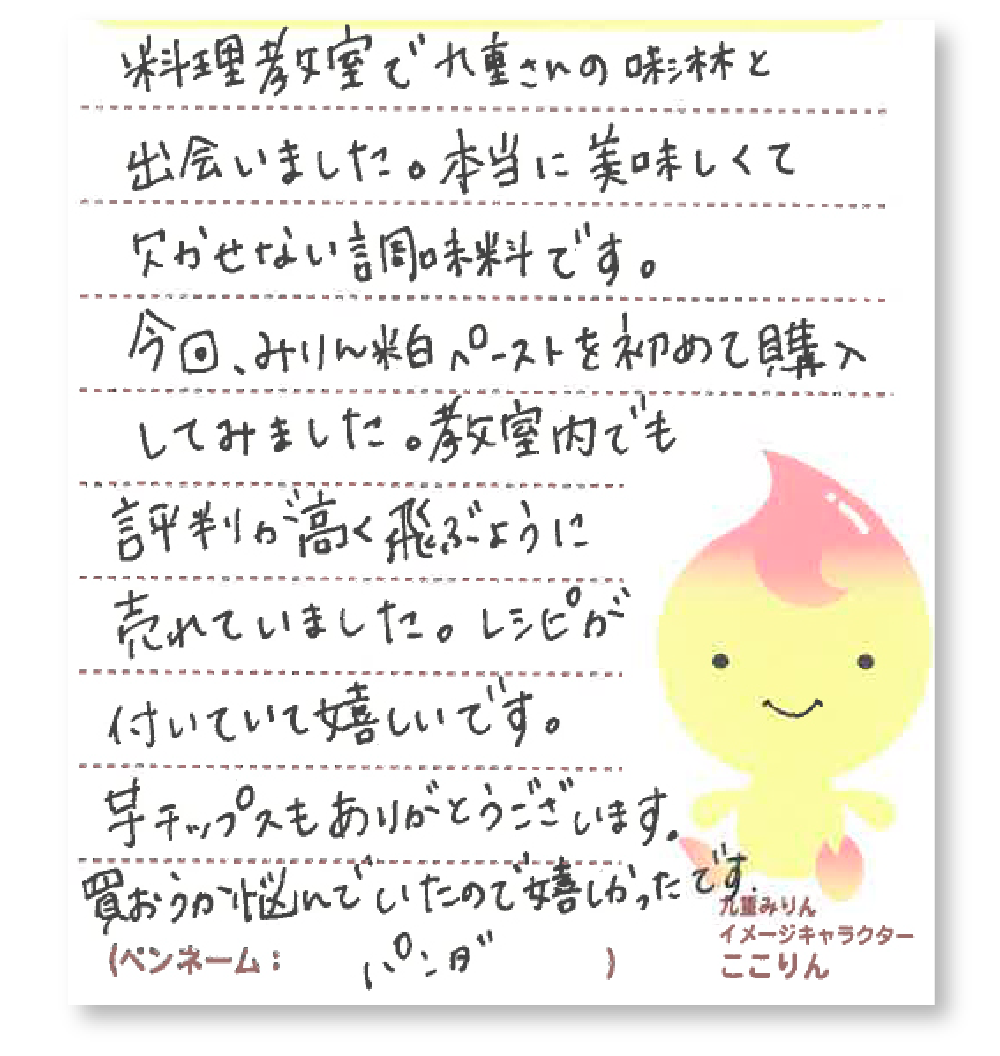 料理教室で九重さんの味淋と
出会いました。本当に美味しくて
欠かせない調味料です。
今回、みりん粕ペーストを初めて購入
してみました。教室内でも
評判が高く飛ぶように
売れていました。レシピが
付いていて嬉しいです。
芋チップスもありがとうございます。
買おうか悩んでいたので嬉しかったです。
(ペンネーム： パンダ )
九重みりん
イメージキャラクター
ここりん